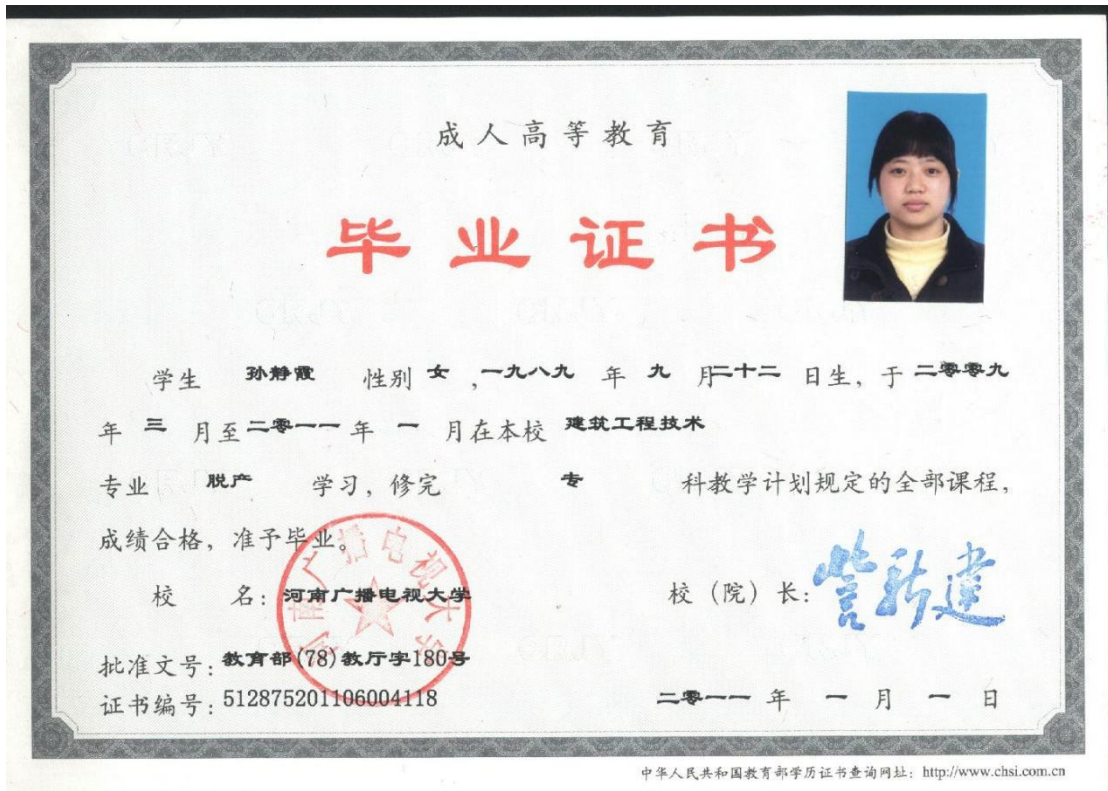 成人高等教育
毕业证书
学生 孙静霞 性别 女 ,一九八九 年 九 月二十二 日生，于 二零零九
年 三 月至 二零一一 年 一 月在本校 建筑工程技术
专业 脱产 学习，修完 专 科教学计划规定的全部课程，
成绩合格，准予毕业。
河南广播电视大学
校 名：河南广播电视大学 校（院）长：
批准文号：教育部(78)教厅字180号
证书编号：512875201106004118 二零一一 年 一 月 一 日
中华人民共和国教育部学历证书查询网址：http://www.chsi.com.cn